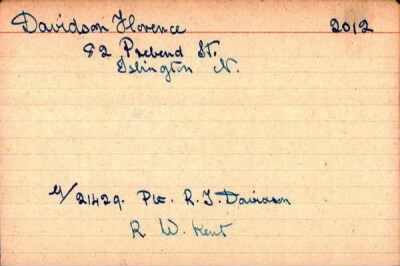 Davidson Florence 2012
92 Prebend St.
Islington N.
G/21429. Pte. R. J. Davidson
R W. Kent